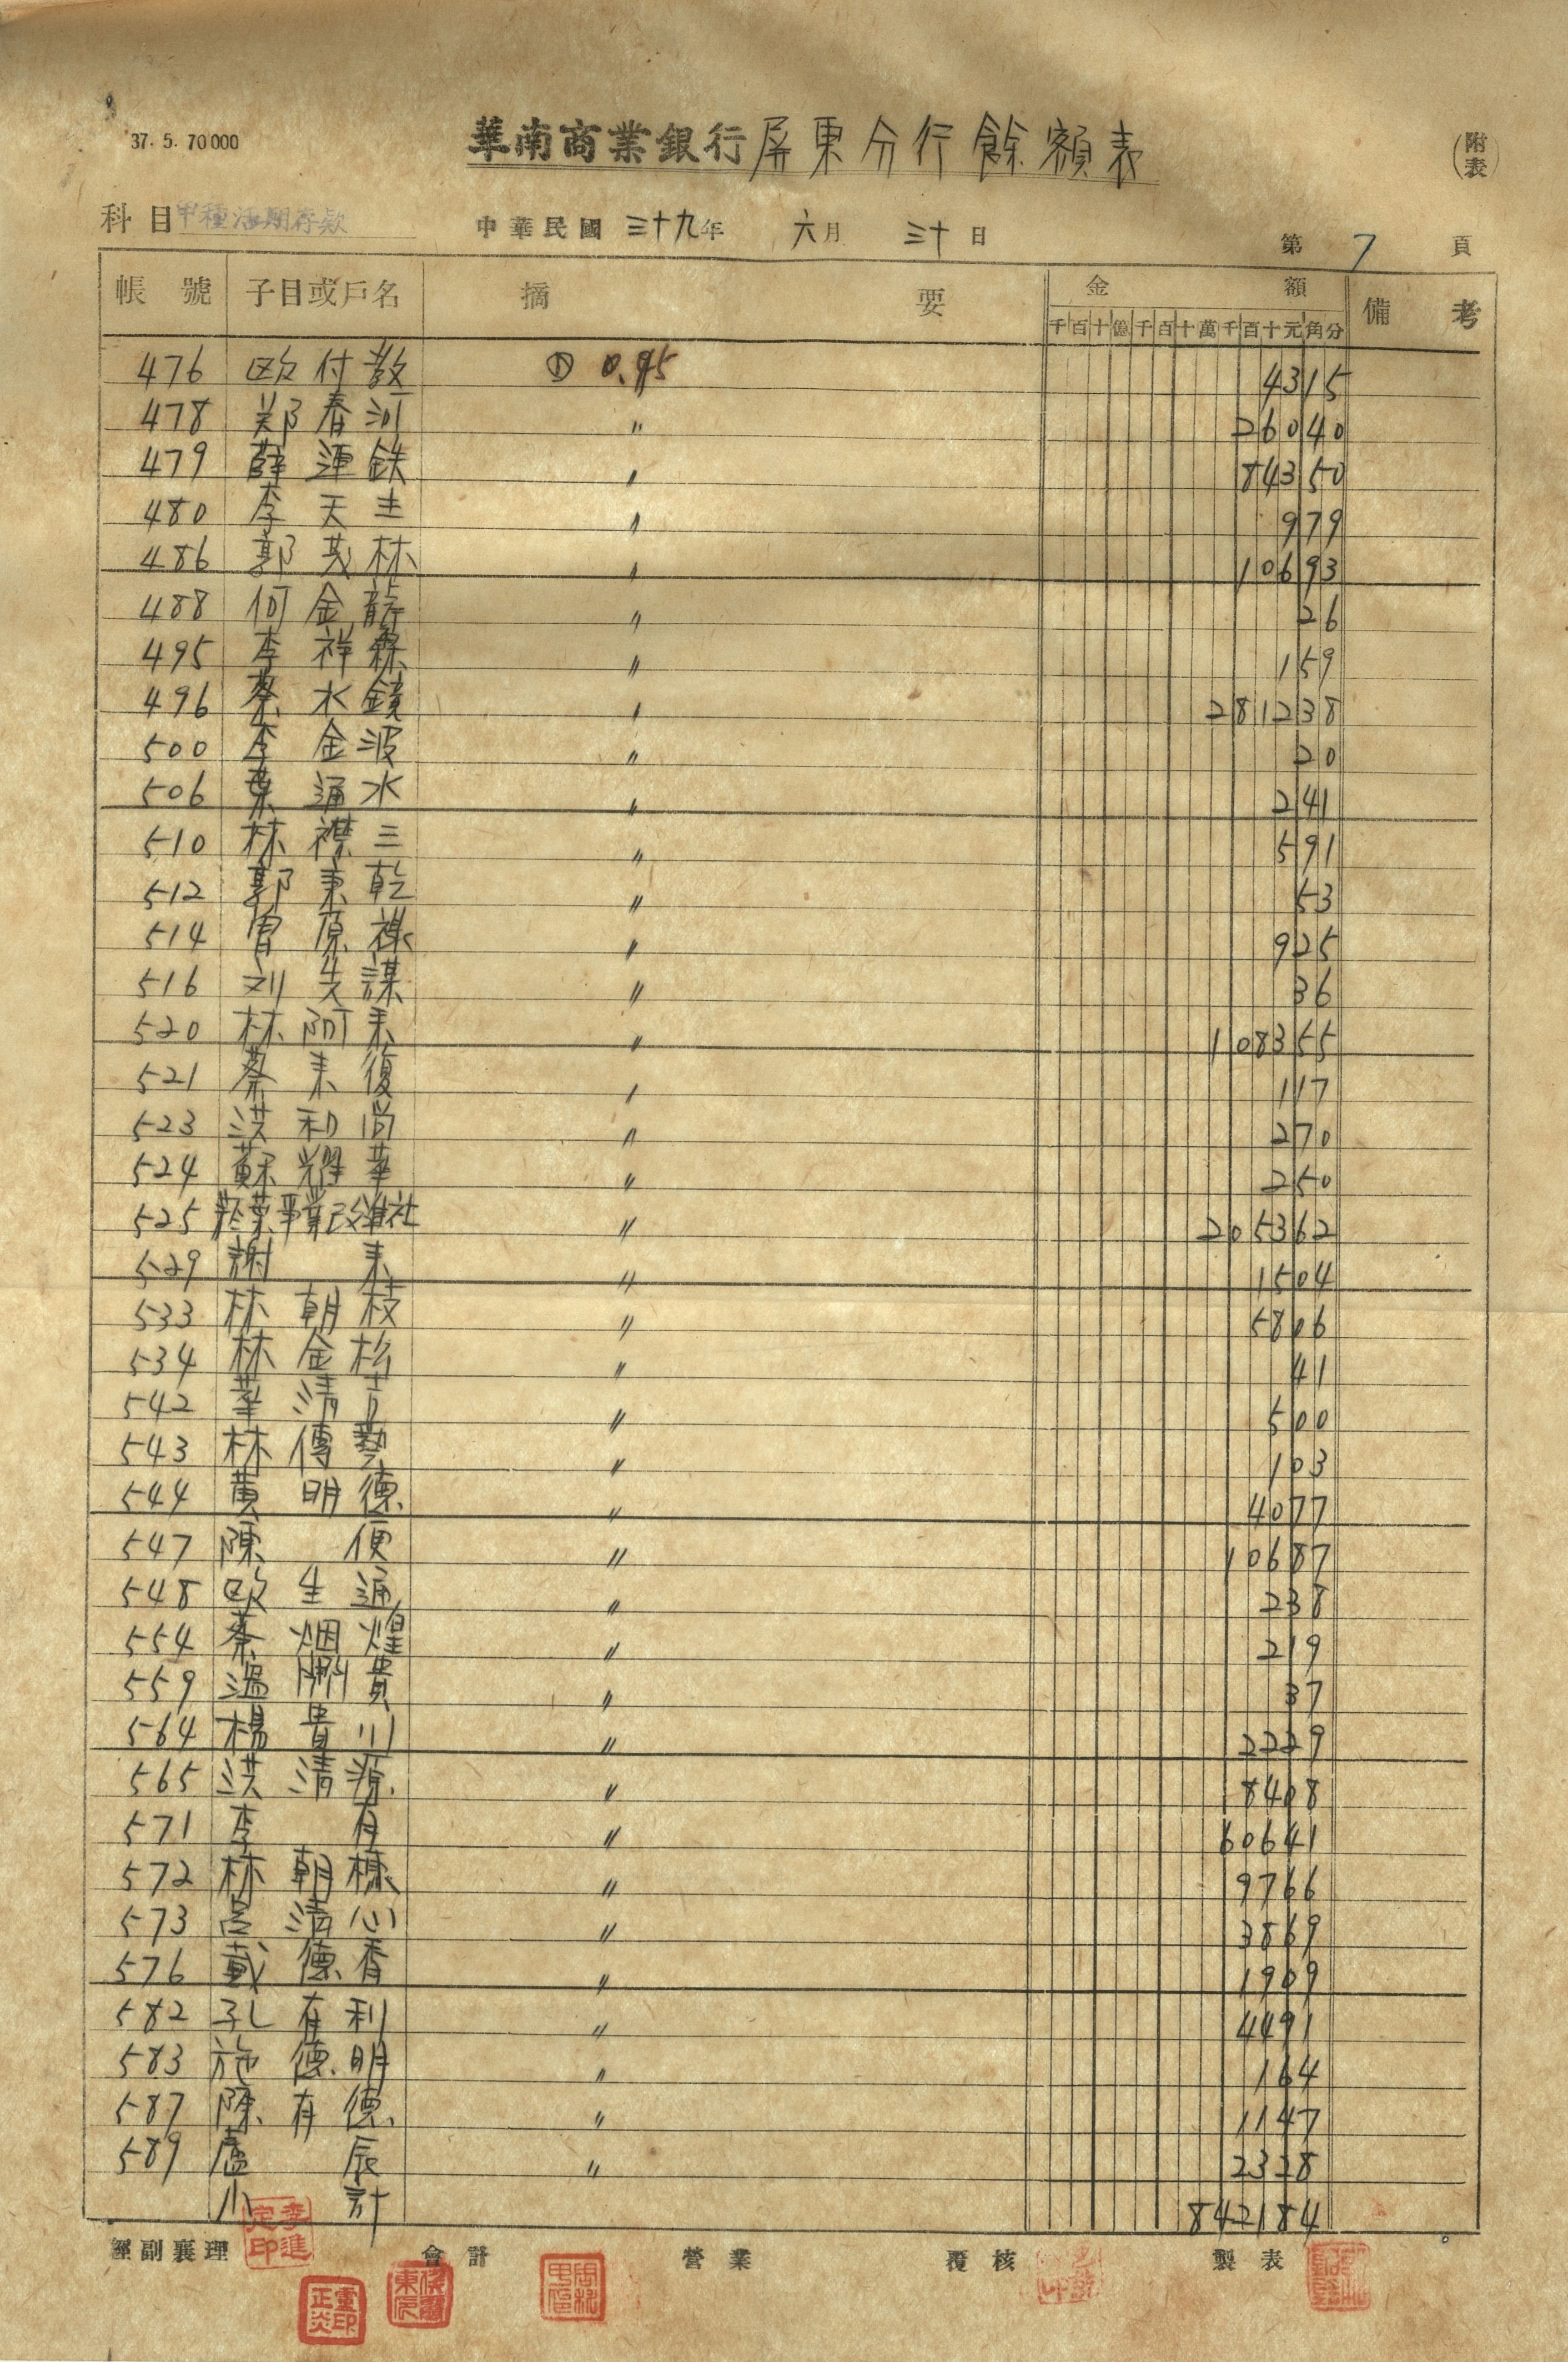 37. 5. 70000
華南商業銀行屏東分行餘額表
(附表)
科目甲種活期存款 中華民國三十九年 六月 三十日 第7頁
帳號 子目或戶名 摘要 金額 備考
千百十億千百十萬千百十元角分
476 欧付教 ① 0.45 4315
478 郑春河 〃 26040
479 薛運鉄 〃 84350
480 李天生 〃 979
486 郭茂林 〃 10693
488 何金龍 〃 26
495 李祥霖 〃 159
496 蔡水鏡 〃 281238
500 李金波 〃 20
506 葉通水 〃 241
510 林襟三 〃 591
512 郭秉乾 〃 53
514 曾原祿 〃 925
516 刘先謀 〃 36
520 林阿耒 〃 108355
521 蔡耒復 〃 117
523 洪和尚 〃 270
524 蘇耀華 〃 250
525 菸葉事業改進社 〃 205362
529 謝耒 〃 1504
533 林朝枝 〃 5806
534 林金杉 〃 41
542 華清吉 〃 500
543 林傳藝 〃 103
544 黃明德 〃 4077
547 陳便 〃 10687
548 欧生通 〃 238
554 蔡烟煌 〃 219
559 溫阿貴 〃 37
564 楊貴川 〃 2229
565 洪清源 〃 8408
571 李有 〃 60641
572 林朝樑 〃 9766
573 呂清心 〃 3869
576 戴德香 〃 1909
582 孔有利 〃 4491
583 施德明 〃 164
587 陳有德 〃 1147
589 盧辰 〃 2328
小計 842184
經副襄理 會計 營業 覆核 製表
李進定印